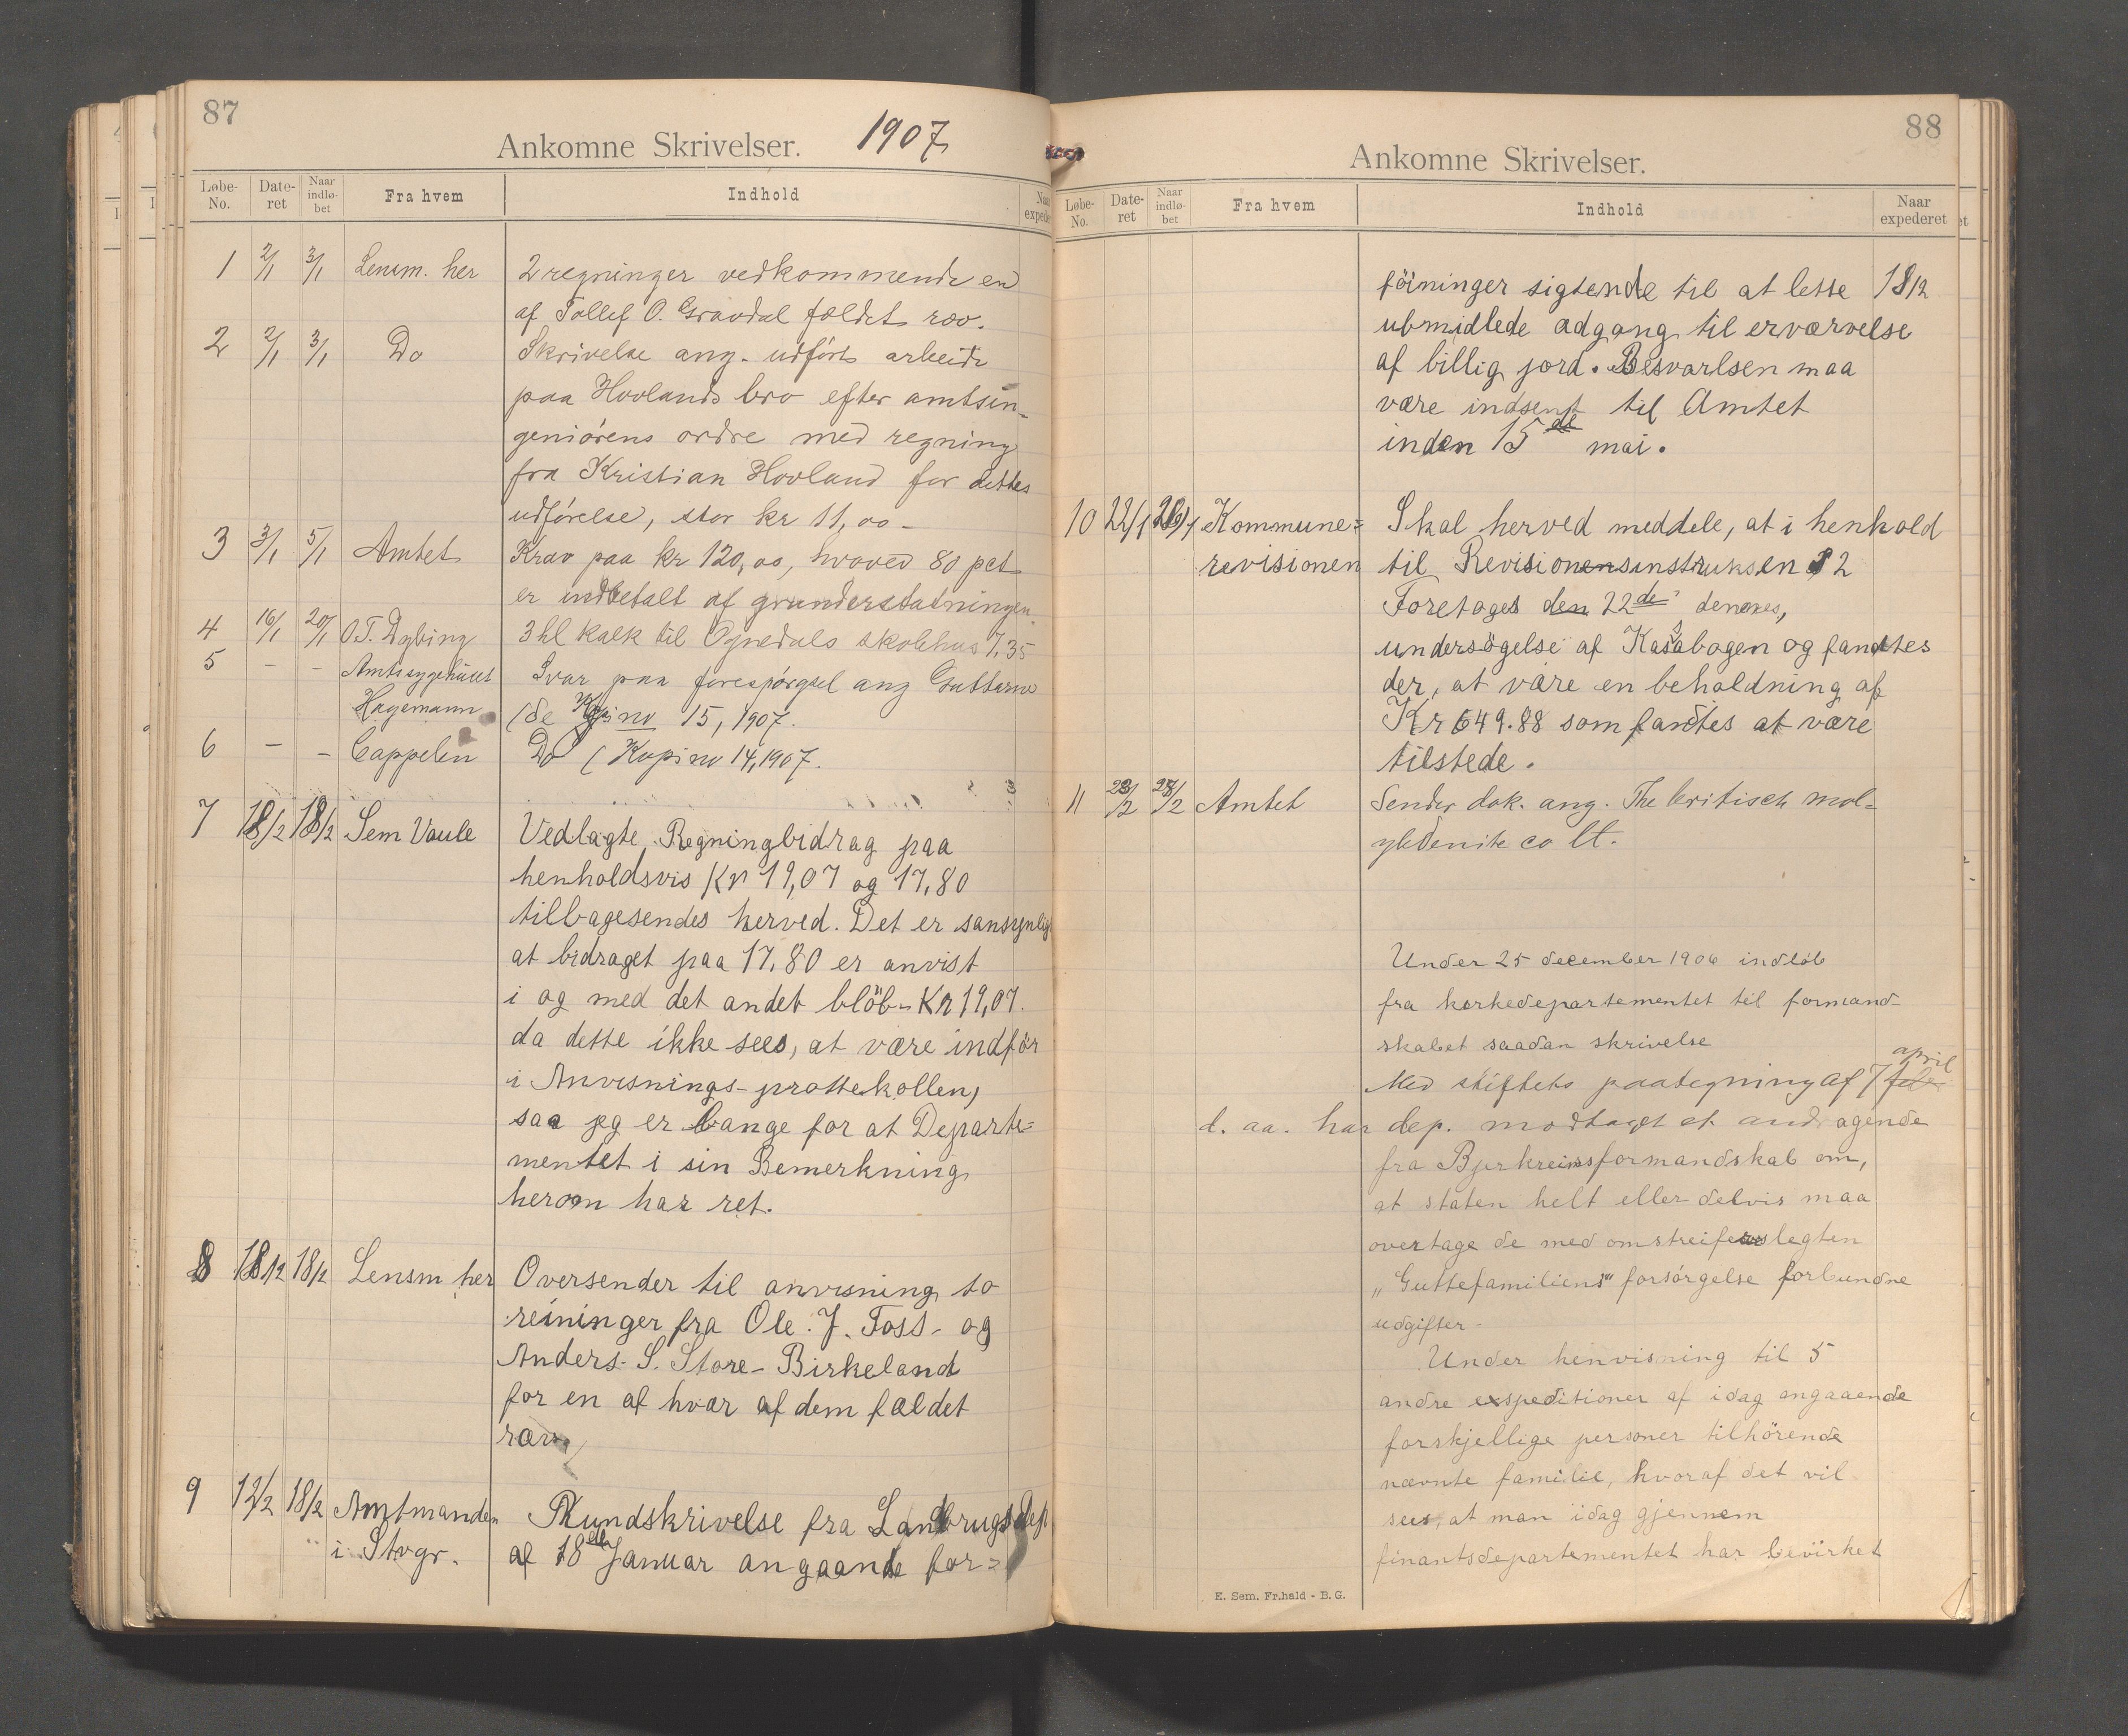 87
Ankomne Skrivelser. 1907
Løbe-No. Date-ret Naar indlø-bet Fra hvem Indhold Naar expede
1 2/1 3/1 Lensm. her 2 regninger vedkommende en
af Tollef O. Gravdal fældet ræv.
2 2/1 3/1 Do Skrivelse ang. udført arbeide
paa Hovlands bro efter amtsin-
geniørens ordre med regning
fra Kristian Hovland for dettes
udførelse, stor kr 11,00 -
3 3/1 5/1 Amtet Krav paa kr 120,00, hvoved 80 pct
er indbetalt af grunderstatningen.
4 16/1 20/1 O.T. Dybing 3 hl kalk til Ognedals skolehus 7,35
5 - - Amtssygehuset Svar paa forespørgsel ang Guttorm
Hagemann (se Kopi no 15, 1907.
6 - - Cappelen Do (Kopi no 14, 1907.
7 18/2 18/2 Sem Vaule Vedlagte Regningbidrag paa
henholdsvis Kr 19,07 og 17,80
tilbagesendes herved. Det er sansynlig
at bidraget paa 17,80 er anvist
i og med det andet blöb - Kr 19,07.
da dette ikke sees, at være indför
i Anvisnings-prottekollen,
saa jeg er bange for at Departe=
mentet i sin Bemerkning
herom har ret.
8 18/2 18/2 Lensm her Oversender til anvisning to
reininger fra Ole. J. Foss - og
Anders. S. Store - Birkeland
for en af hvær af dem fældet
ræv.
9 12/2 18/2 Amtmanden Rundskrivelse fra Landbrugsdep
i Stvgr. af 18de Januar angaande for=
88
Ankomne Skrivelser.
Løbe-No. Date-ret Naar indlø-bet Fra hvem Indhold Naar expederet
föininger sigtende til at lette 18/2
ubmidlede adgang til erværvelse
af billig jord. Besvarlsen maa
være indsent til Amtet
inden 15de mai.
10 22/1 26/1 Kommune= Skal herved meddele, at i henhold
revisionen til Revisionensinstruksen § 2
Foretoges den 22de denenes,
undersögelse af Kassabogen og fandtes
der, at være en beholdning af
Kr 649.88 som fandtes at være
tilstede.
11 23/2 25/2 Amtet Sender dok. ang. The british mol=
ybdenite co lt.
Under 25 december 1906 indløb
fra kirkedepartementet til formand-
skabet saadan skrivelse
Med stiftets paategning af 7 febr april
d. aa. har dep. modtaget et andragende
fra Bjerkreimsformandskab om,
at staten helt eller delvis maa
overtage de med omstreiferslegten
„Guttefamiliens" forsørgelse forbundne
udgifter -
Under henvisning til 5
andre expeditioner af idag angaaende
forskjellige personer tilhörende
nævnte familie, hvoraf det vil
sees, at man idag gjennem
finantsdepartementet har bevirket
E. Sem. Fr.hald - B. G.